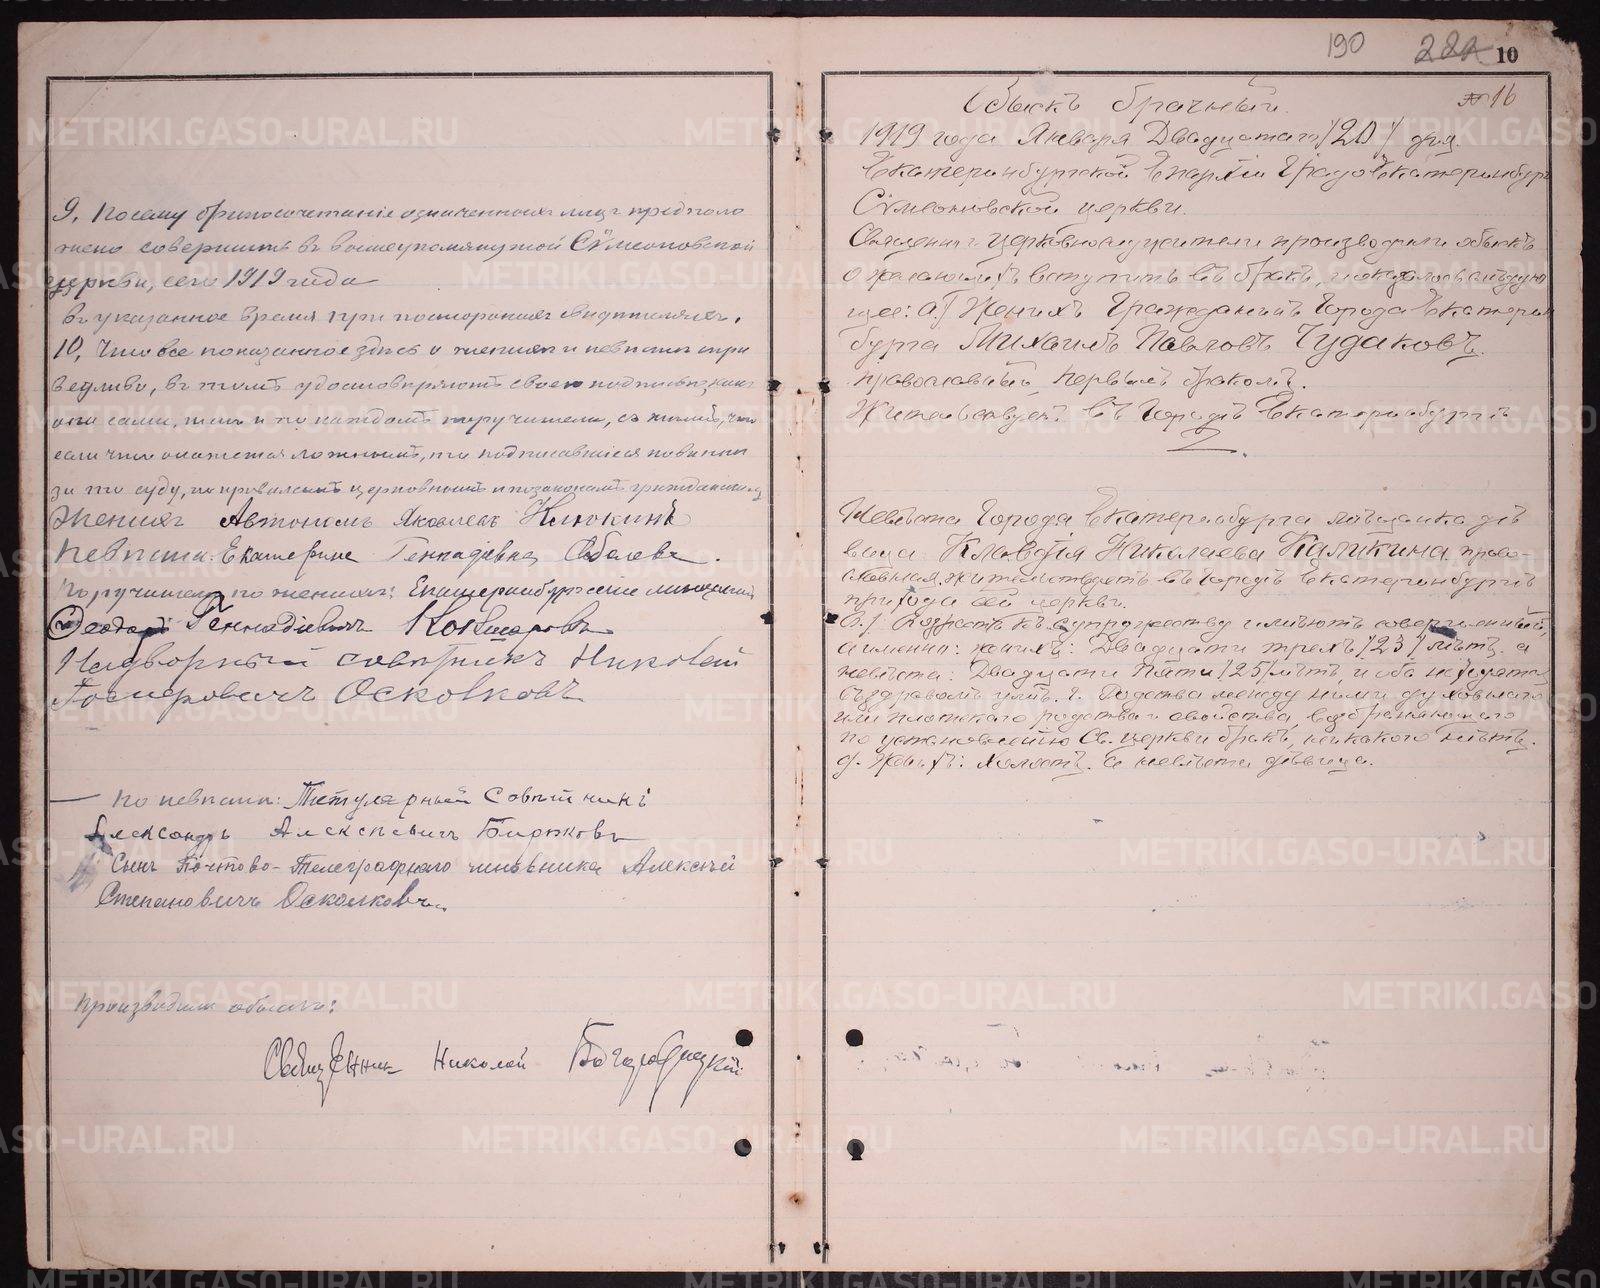 9, Посему бракосочетанiе означенныхъ лицъ предполо
жено совершить въ вышеупомянутой Сѵмеоновской
церкви, сего 1919 года
въ указанное время при постороннихъ свидѣтеляхъ.
10, Что все показанное здѣсь о женихѣ и невѣстѣ спра
ведливо, въ томъ удостовѣряютъ своею подписью какъ
они сами, такъ и по каждомъ поручители, съ тѣмъ, что
если что окажется ложнымъ, то подписавшiеся повинны
за то суду, по правиламъ церковнымъ и по законамъ гражданским
Женихъ Автономъ Яковлевъ Клюкинъ
Невѣста: Екатерина Геннадiевна
Поручители по женихѣ: Екатеринбургскiе
Геннадiевичъ
Надворный совѣтникъ Николай
Осколковъ
По невѣстѣ: Титулярный Совѣтникъ
Александръ Алексѣевичъ Бирюковъ
Сынъ Почтово-Телеграфнаго чиновника Алексѣй
Степановичъ Осколковъ
Производили обыскъ:
Священник Николай Богородицкiй
190 10
Обыскъ брачный. № 16
1919 года Января Двадцатаго /20/ дня.
Екатеринбургской Епархiи Градо Екатеринбург
Сѵмеоновской церкви.
Священно и церковнослужители производили обыскъ
о желающихъ вступить въ бракъ, и оказалось слѣдую
щее: а) Женихъ Гражданинъ Города Екатерин
бурга Михаилъ Павловъ Чудаковъ.
православный, первымъ бракомъ.
Жительствуетъ въ Городѣ Екатеринбургѣ
Невѣста Города Екатеринбурга мѣщанка дѣ
вица Клавдiя Николаева Каликина право-
славная, жительствуетъ въ Городѣ Екатеринбургѣ
прихода сей церкви.
Возрастъ къ супружеству имѣютъ совершенный,
а именно: женихъ: Двадцати трехъ /23/ лѣтъ. а
невѣста: Двадцати Пяти /25/ лѣтъ, и оба находятся
въ здравомъ умѣ. Родства между ними духовнаго
или плотскаго родства и свойства, возбраняющаго
по установленiю Св. церкви бракъ, никакого нѣтъ.
Женихъ: холостъ. а невѣста дѣвица.
METRIKI.GASO-URAL.RU